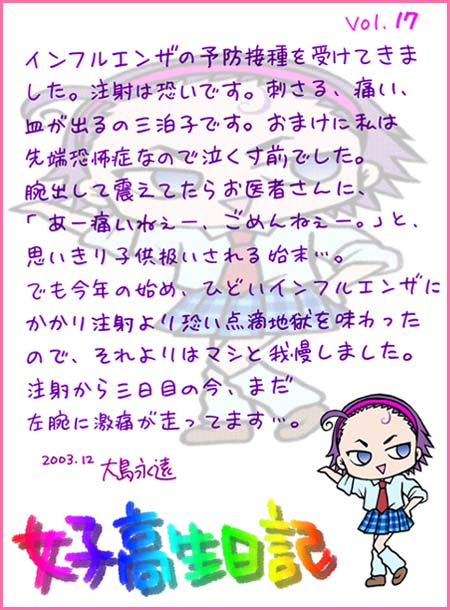 vol. 17
インフルエンザの予防接種を受けてきま
した。注射は恐いです。刺さる、痛い、
血が出るの三泊子です。おまけに私は
先端恐怖症なので泣く寸前でした。
腕出して震えてたらお医者さんに、
「あー痛いねぇー、ごめんねぇー。」と、
思いきり子供扱いされる始末…。
でも今年の始め、ひどいインフルエンザに
かかり注射より恐い点滴地獄を味わった
ので、それよりはマシと我慢しました。
注射から三日目の今、まだ
左腕に激痛が走ってます…。
2003.12 大島永遠
女子高生日記